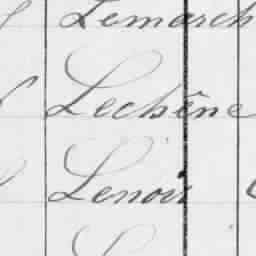 Lemarch
Lechêne
Lenoir